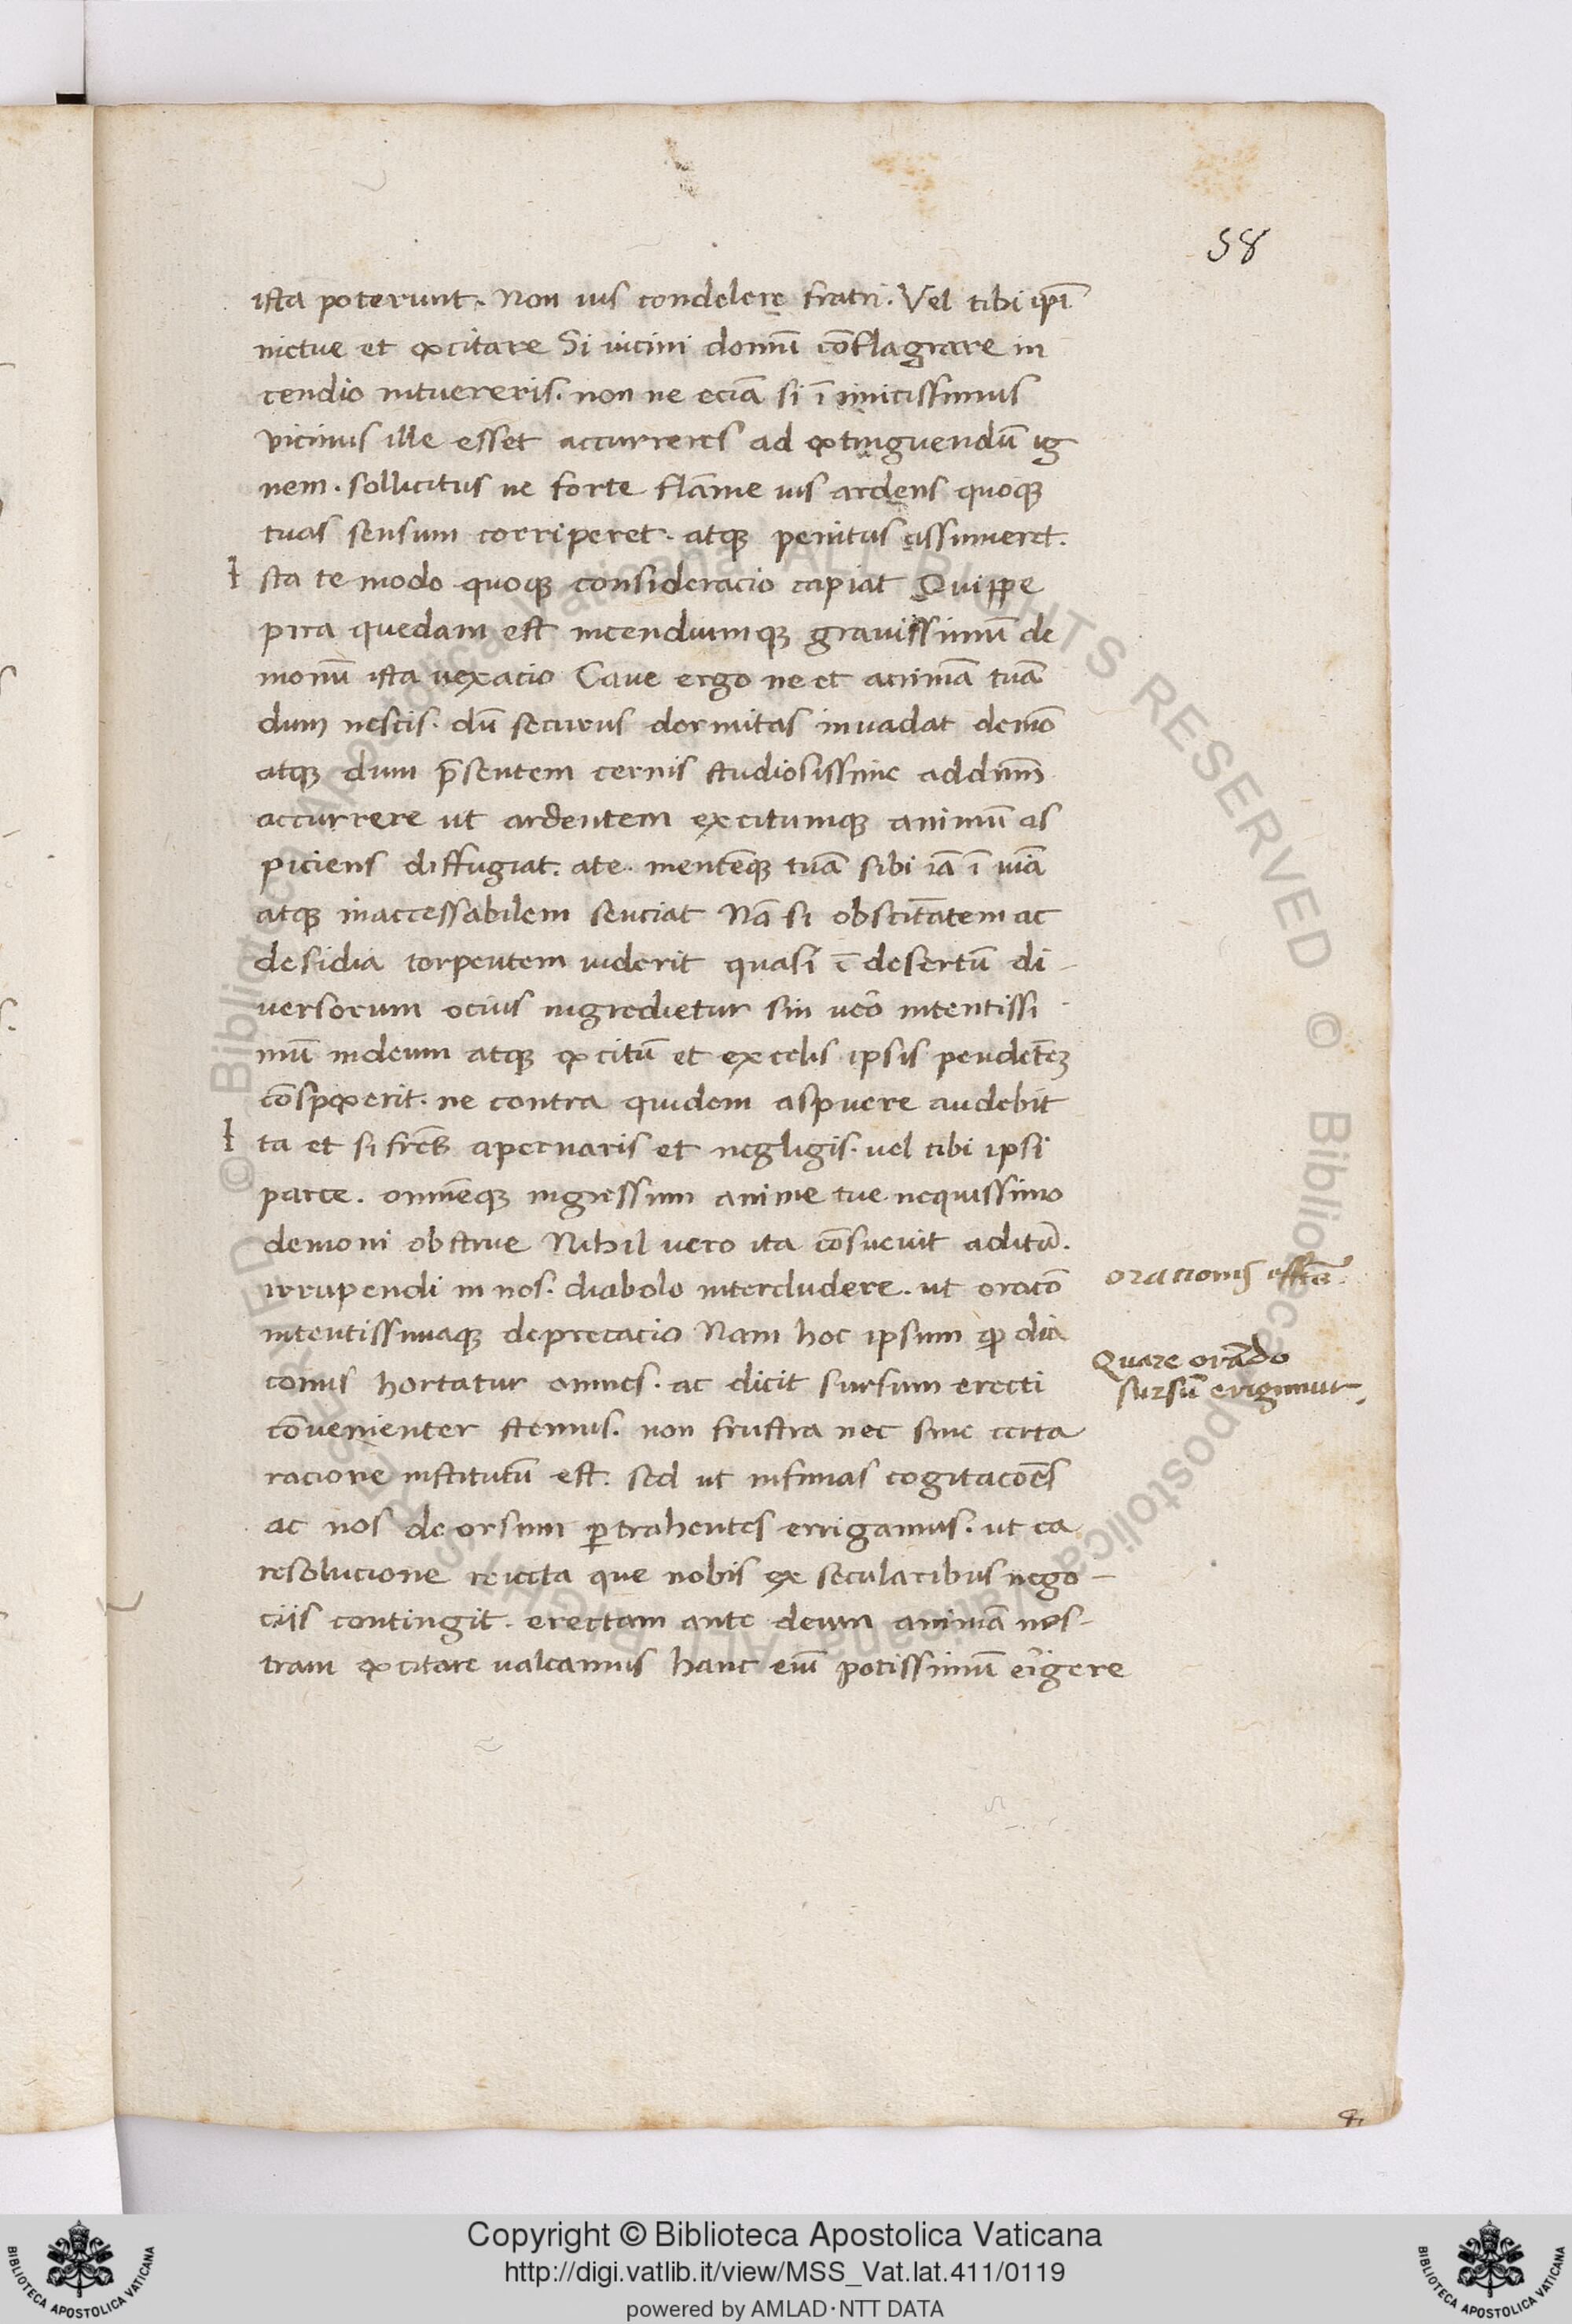 58
ista poterunt. Non vis condelere fratri. Vel tibi ip̄i
metue et excitare Si vicini domū cōflagrare in
cendio intuereris. non ne eciā si ī imicissimus
vicinus ille esset accurreres ad extinguendū ig
nem. sollicitus ne forte flāme vis ardens quoqꝫ
tuas sensum corriperet. atqꝫ penitus assumeret.
I sta te modo quoqꝫ consideracio capiat Quippe
pira quedam est incendiumqꝫ grauissimū de
monū ista uexacio Caue ergo ne et animā tuā
dum nescis. dū securus dormitas inuadat demō
atqꝫ dum p̄sentem cernis studiosissime addnm̄
accurrere ut ardentem excitumqꝫ animū as
piciens diffugiat. ate. mentēqꝫ tuā sibi iā ī uiā
atqꝫ inaccessabilem senciat Nā si obscitātem ac
desidia torpentem uiderit quasi ī desertū di-
uersorum ocius ingredietur sin uēo intentissi
mū indeum atqꝫ excitū et ex celis ipsis pendētē
cōspexerit. ne contra quidem aspuere audebit
I ta et si frēs apernaris et negligis. uel tibi ipsi
parce. omnēqꝫ ingressum anime tue nequissimo
demoni obstrue Nihil uero ita cōsueuit aditū.
irrupendi in nos. diabolo intercludere. ut oracō
intentissimaqꝫ deprecacio Nam hoc ipsum ꝙ dia
conus hortatur omnes. ac dicit sursum erecti
cōuenienter stemus. non frustra nec sine certa
racione institutū est. sed ut infimas cogitacōēs
ac nos deorsum ꝑtrahentes errigamus. ut ea
resolucione reiecta que nobis ex secularibus nego-
ciis contingit. erectam ante deum animā nos-
tram excitare ualeamus hanc eiū potissimū eīgere
oracionis effcūs.
Quare orādo
sursū erigimur.
Copyright © Biblioteca Apostolica Vaticana
http://digi.vatlib.it/view/MSS_Vat.lat.411/0119
powered by AMLAD·NTT DATA
BIBLIOTECA APOSTOLICA VATICANA
BIBLIOTECA APOSTOLICA VATICANA